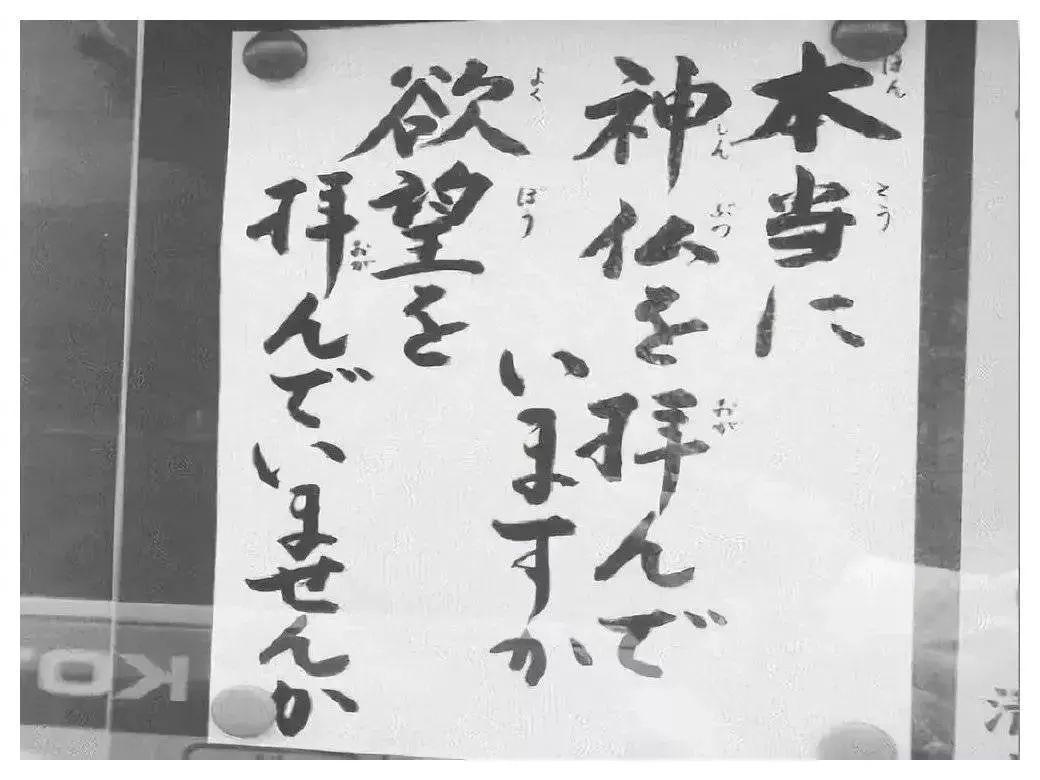 本当に
神仏を拝んで
いますか
欲望を
拝んでいませんか
ほん
とう
しん
ぶつ
おが
よく
ぼう
おが
KO